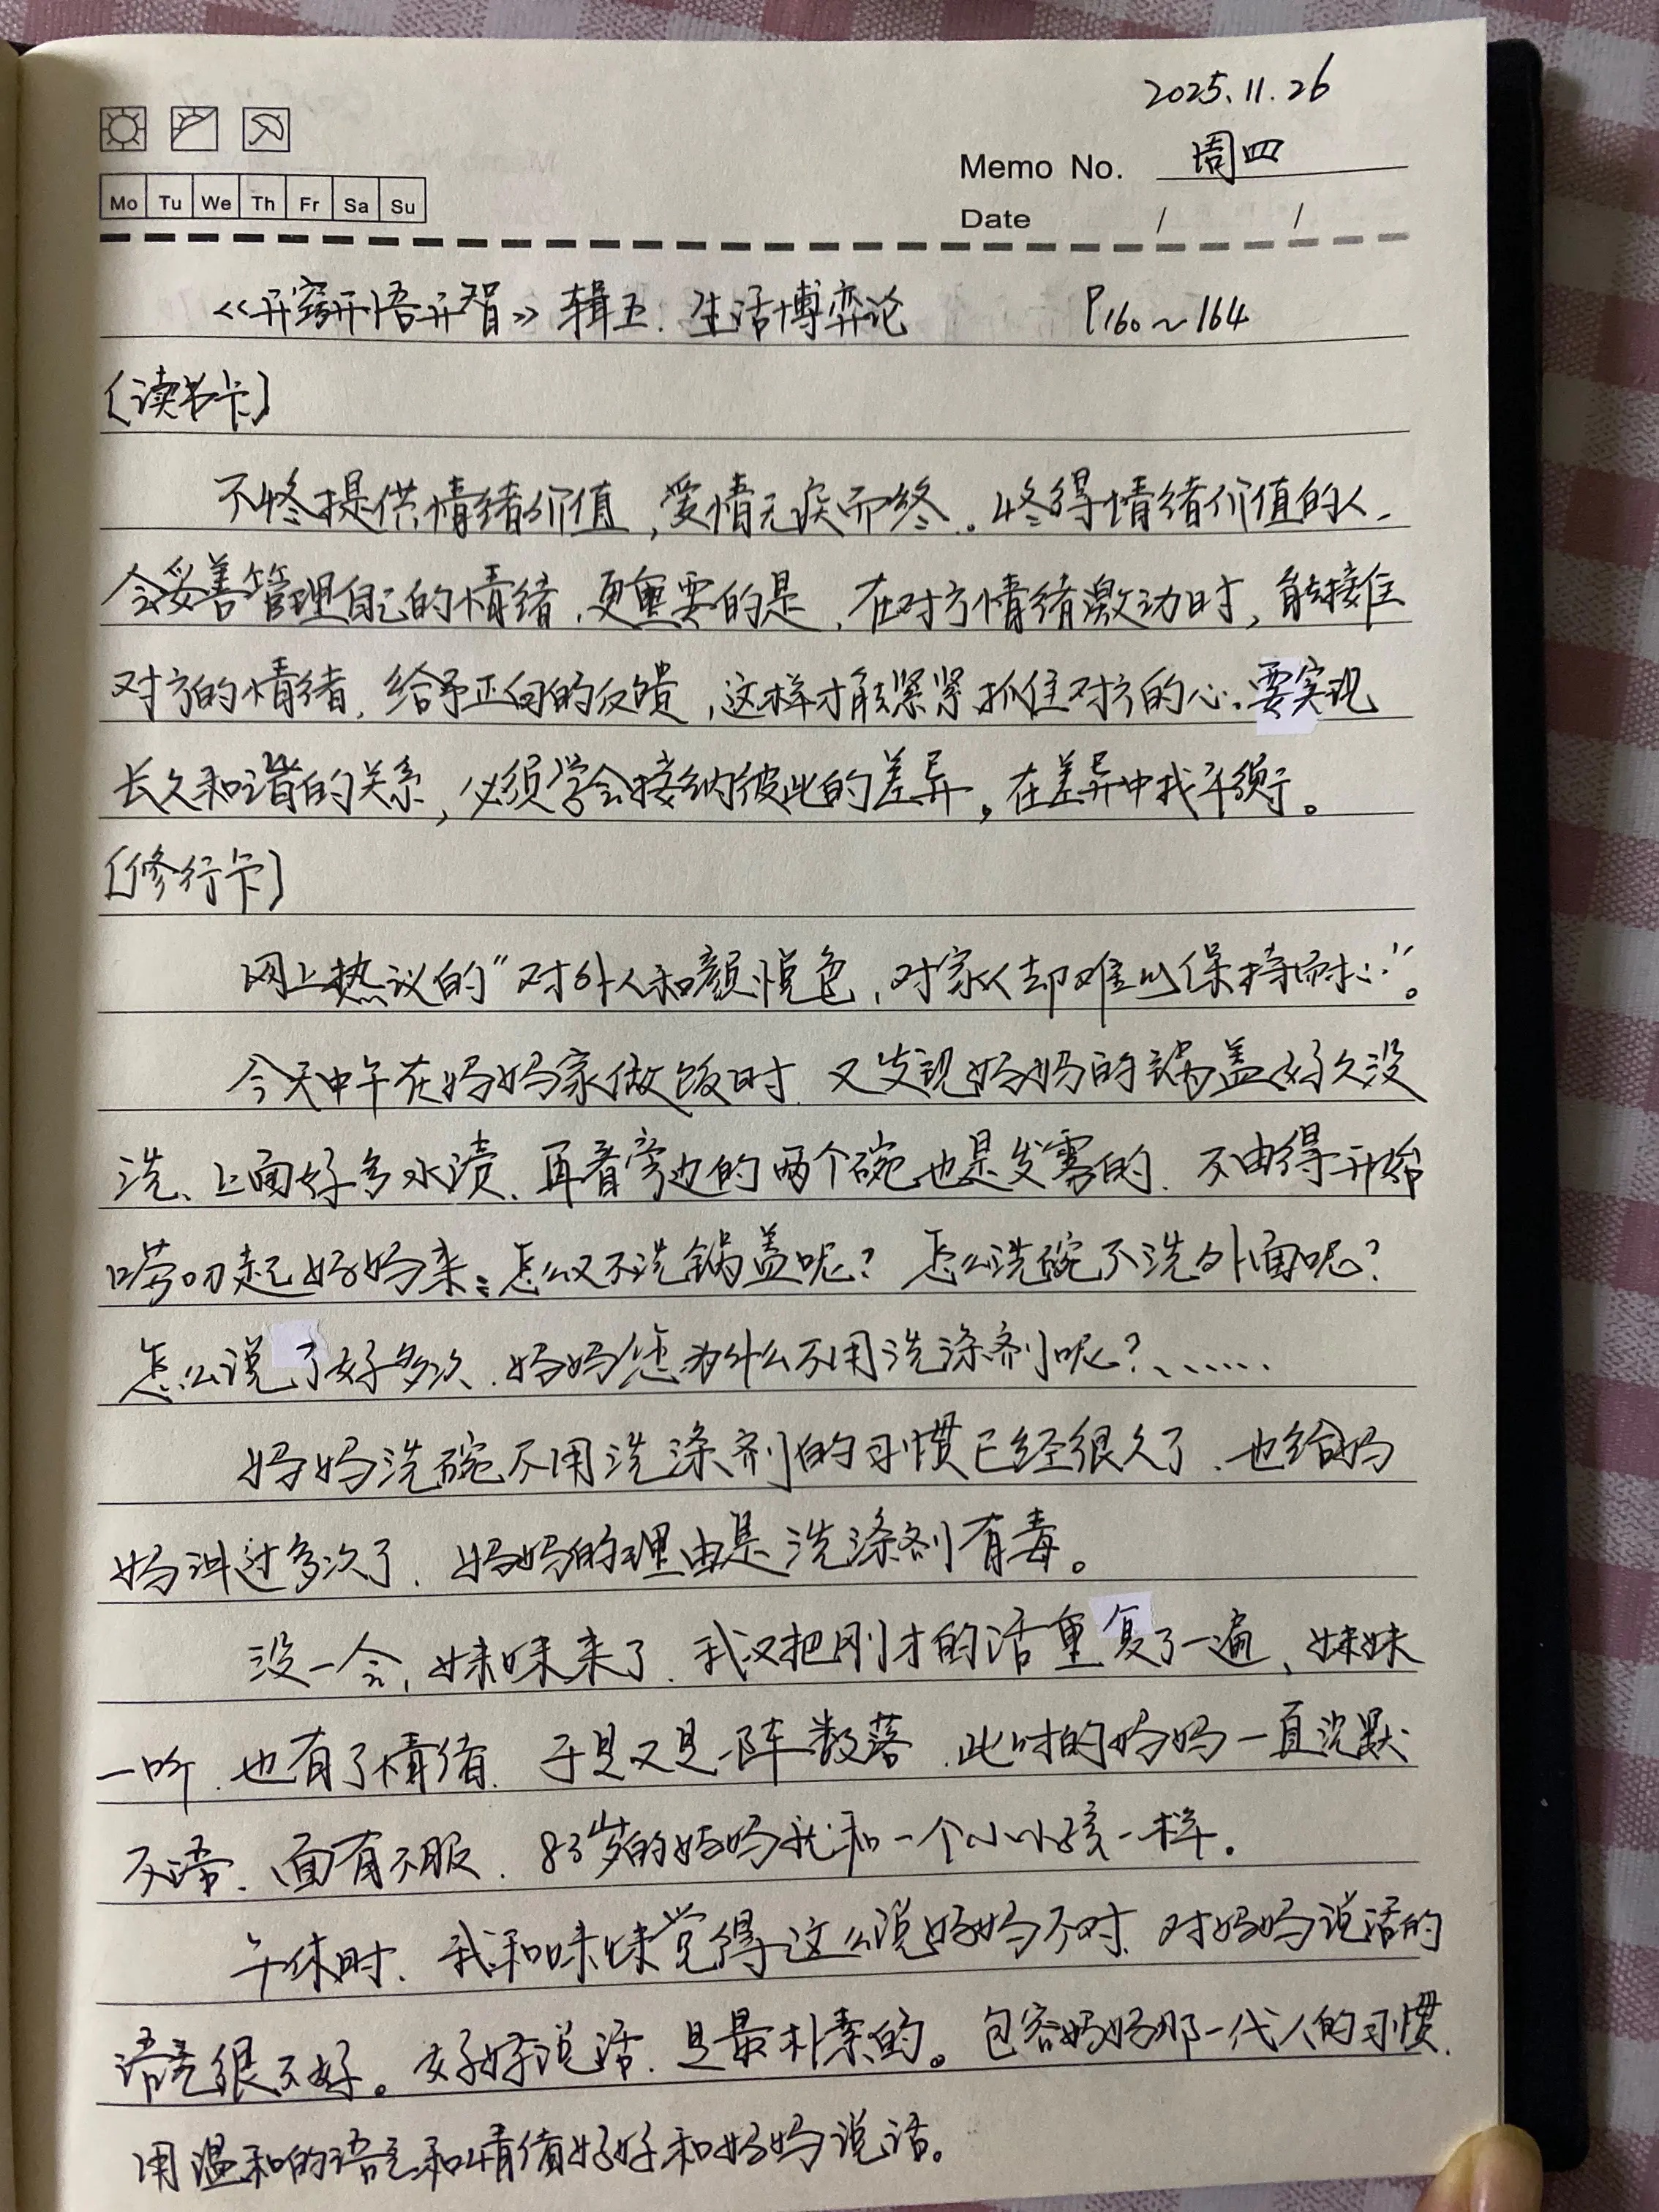 2025.11.26
Memo No. 周四
Mo Tu We Th Fr Sa Su
Date / /
《开窍开悟开智》辑五.生活博弈论 P160~164
〔读书卡〕
不懂提供情绪价值，爱情无疾而终。懂得情绪价值的人、
会妥善管理自己的情绪，更重要的是，在对方情绪激动时，能接住
对方的情绪，给予正向的反馈，这样才能紧紧抓住对方的心。要实现
长久和谐的关系，必须学会接纳彼此的差异。在差异中找平衡。
〔修行卡〕
网上热议的"对外人和颜悦色，对家人却难以保持耐心"。
今天中午在妈妈家做饭时、又发现妈妈的锅盖好久没
洗、上面好多水渍、再看旁边的两个碗也是发雾的、不由得开始
唠叨起妈妈来：怎么又不洗锅盖呢？怎么洗碗不洗外面呢？
怎么说了好多次、妈妈您为什么不用洗涤剂呢？、……
妈妈洗碗不用洗涤剂的习惯已经很久了、也给妈
妈讲过多次了、妈妈的理由是洗涤剂有毒。
没一会，妹妹来了、我又把刚才的话重复了一遍、妹妹
一听、也有了情绪、于是又是一阵数落、此时的妈妈一直沉默
不语、面有不服、83岁的妈妈就和一个小小孩一样。
午休时、我和妹妹觉得这么说妈妈不对、对妈妈说话的
语言很不好。好好说话、是最朴素的。包容妈妈那一代人的习惯、
用温和的语言和情绪好好和妈妈说话。